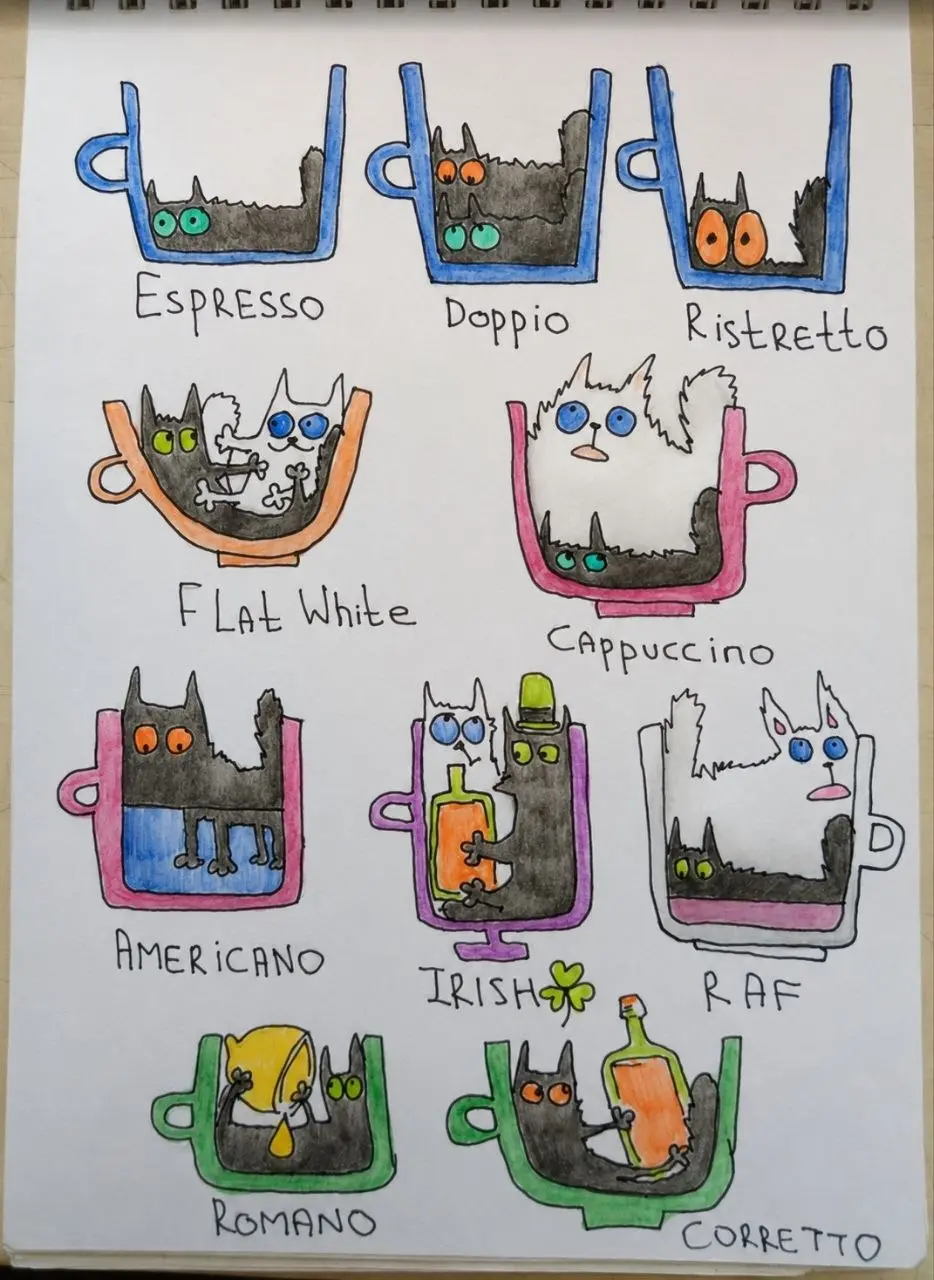 Espresso
Doppio
Ristretto
Flat White
Cappuccino
AMERICANO
IRISH
RAF
ROMANO
CORRETTO